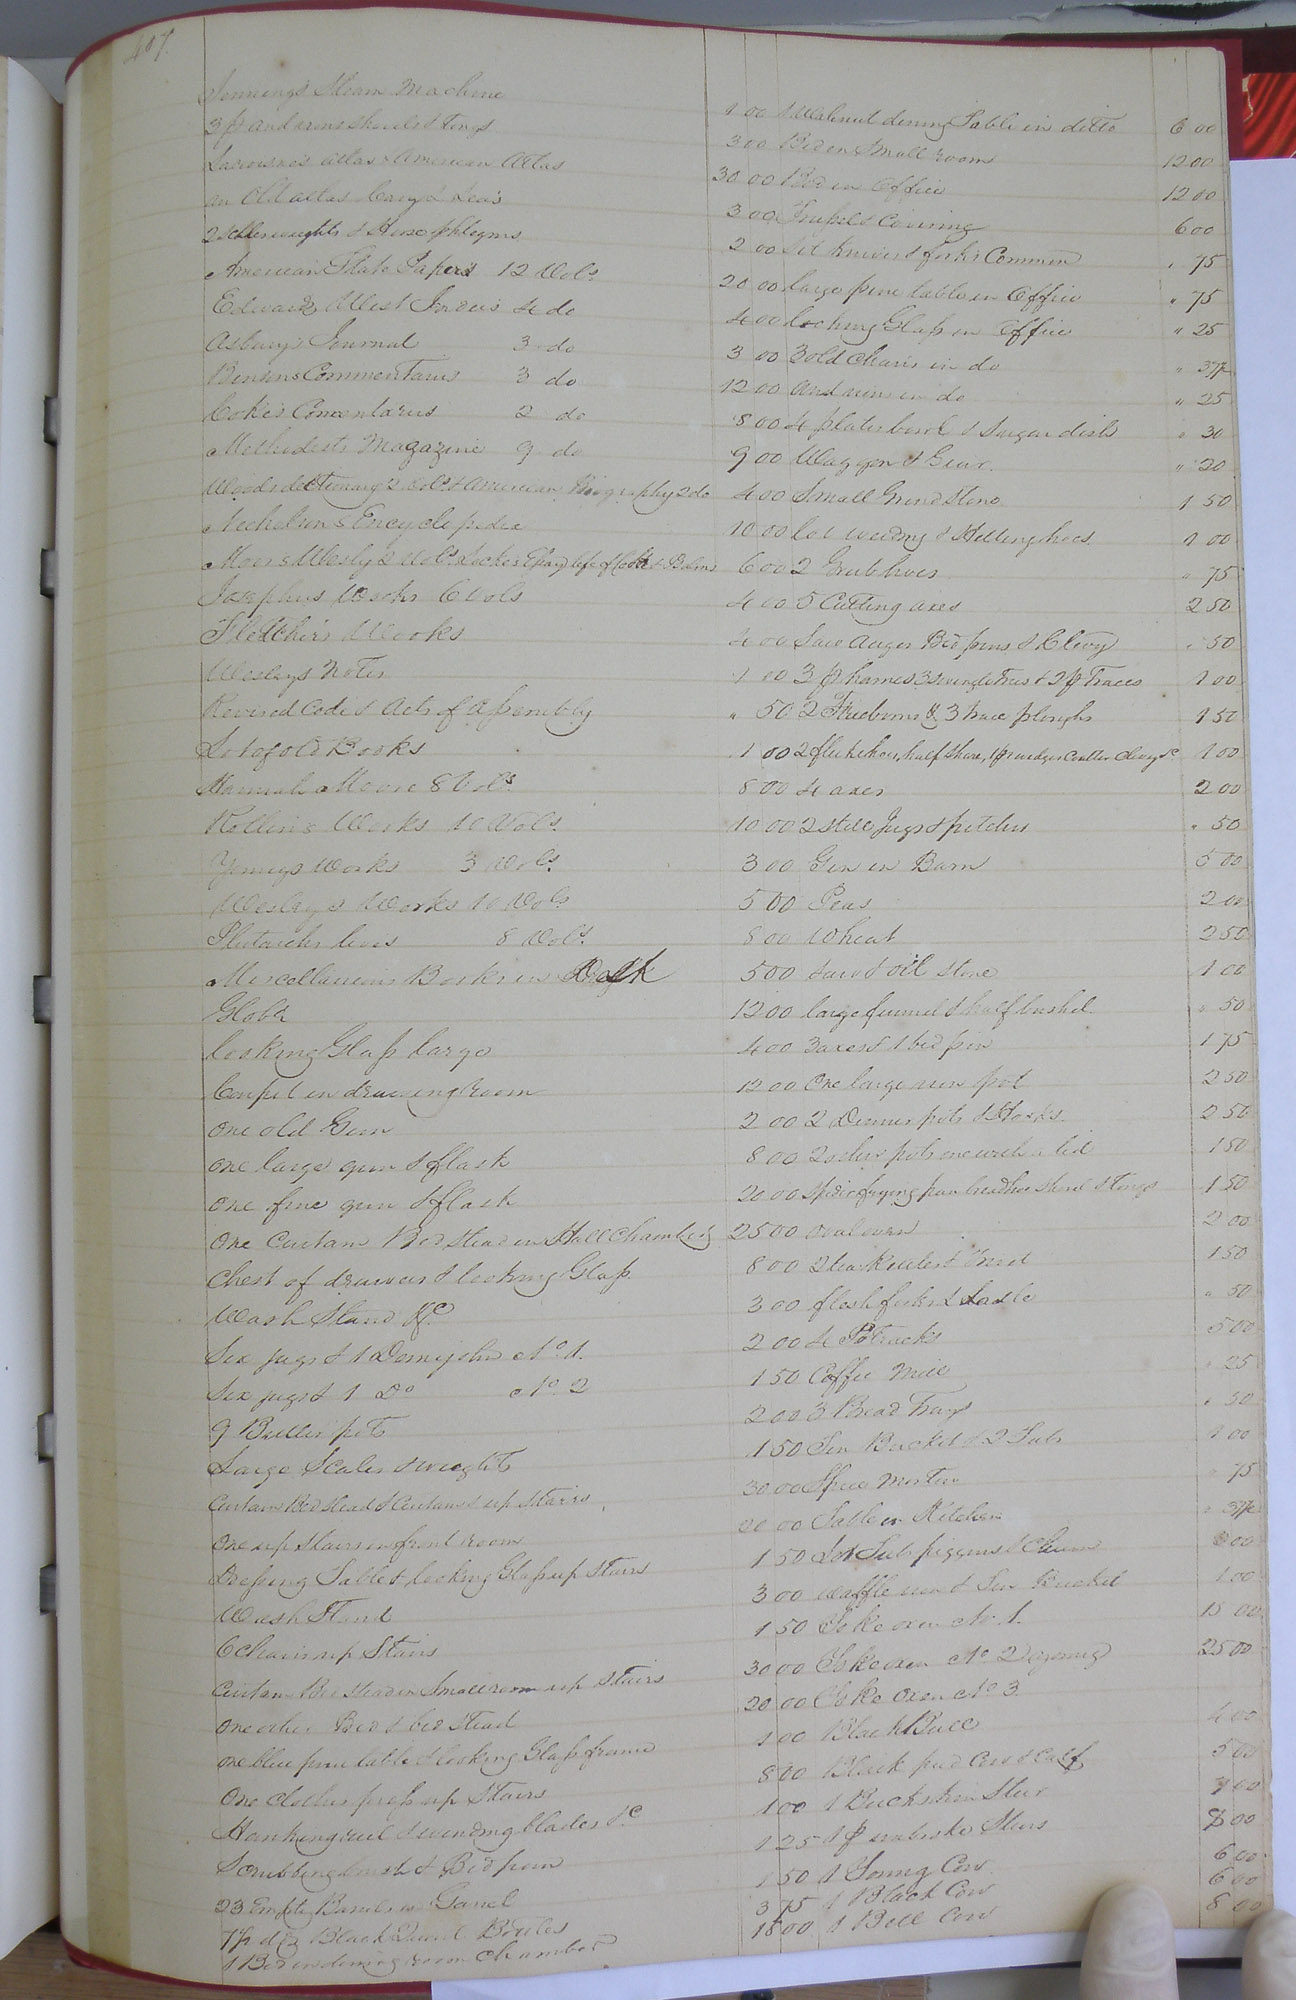 407
Jennings Steam Machine 1 00
3 pr andirons shovels & tongs 3 00
Lavoisne's atlas & American Atlas 30 00
an Old atlas Cary & Lea's 3 00
2 weights & Horse phlegms 2 00
American State Papers 12 Vols 20 00
Edwards West Indies 4 do 4 00
Asbury's Journal 3 do 3 00
Bensons Commentaries 3 do 12 00
Coke's Comentaries 2 do 8 00
Methodist Magazine 9 do 9 00
Woods dictionary 2 Vols & American Biography 2 do 4 00
Nicholson's Encyclopedia 10 00
Moors Wesly 2 Vols Locke's Essay life of Coke & 6 00
Josephus Works 6 Vols 4 00
Fletcher's Works 4 00
Wesleys Notes 1 00
Revised Code & Acts of Assembly " 50
Lot of old Books 1 00
Hannah Moore 8 Vols 8 00
Rollin's Works 10 Vols 10 00
Youngs Works 3 Vols 3 00
Wesley's Works 10 Vols 5 00
Plutarchs lives 8 Vols 8 00
Miscellaneous Books in Desk 5 00
Globe 12 00
looking Glass large 4 00
Carpet in drawing room 12 00
One old Gun 2 00
One large gun & flask 8 00
One fine gun & flask 20 00
One Curtain Bed Stead in Hall Chamber 25 00
Chest of drawers & looking Glass 8 00
Wash Stand &c 3 00
Six jugs & 1 Demijohn No 1. 2 00
Six jugs & 1 Do No 2 1 50
9 Butter pots 2 00
Large Scales & weights 1 50
Curtain Bed Stead & Curtains up Stairs 30 00
One up Stairs in front room 00
Dressing Table & looking Glass up Stairs 1 50
Wash Stand 3 00
6 Chairs up Stairs 1 50
Curtain Bed Stead in Small room up Stairs 30 00
One other Bed & bed Stead 20 00
One blue pine table & looking Glass frame 1 00
One Clothes press up Stairs 8 00
Hanking reel & winding blades &c 1 00
Scrubbing brush & Bed pan 1 25
23 Empty Barrels in 1 50
7½ doz Black Quart Bottles 3 75
1 Bed in dining room Chamber 18 00
1 Walnut dining Table in ditto 6 00
Bed in Small room 12 00
Bed in Office 12 00
Trussel & Covering 6 00
Set knives & forks Common " 75
large pine table in Office " 75
looking Glass in Office " 25
3 old Chairs in do " 37½
Andirons in do " 25
4 plates bowl & Sugar dish " 30
Waggon & Gear " 20
Small Grind Stone 1 50
lot weeding & Hilling hoes 1 00
2 Grub hoes " 75
5 Cutting axes 2 50
Saw Auger Bed pins & Clevy " 50
3 pr hames 3 swingletrees & 2 pr Traces 1 00
2 Freeborns & 3 trace ploughs 1 50
2 fluke hoes, half share, 1 pr wedges Coulter Clevy &c 1 00
4 axes 2 00
2 still Jugs & pitcher " 50
Gin in Barn 5 00
Peas 2 00
Wheat 2 50
Saw & oil stone 1 00
large funnel & half bushel " 50
3 axes & 1 bed pin 1 75
One large iron pot 2 50
2 Dinner pots & Hooks 2 50
2 other pots one with a lid 1 50
Spider frying pan shovel & tongs 1 50
Oval oven 2 00
2 tea Kettles & Trivet 1 50
flesh fork & Ladle " 50
4 Pot racks 5 00
Coffee Mill " 25
3 Bread Trays " 50
Tin Bucket & 2 Tubs 1 00
Spice Mortar " 75
Table in Kitchen " 37½
Lot Tubs piggins & Churn 00
waffle iron & Tin Bucket 1 00
Yoke oxen No. 1. 15 00
Yoke oxen No 2 young 25 00
Yoke Oxen No 3
Black Bull 4 00
Black pied Cow & Calf 5 00
1 Buckskin Steer 7 00
1 pr unbroke Steers 8 00
1 Young Cow 6 00
1 Black Cow 6 00
1 Bell Cow 8 00